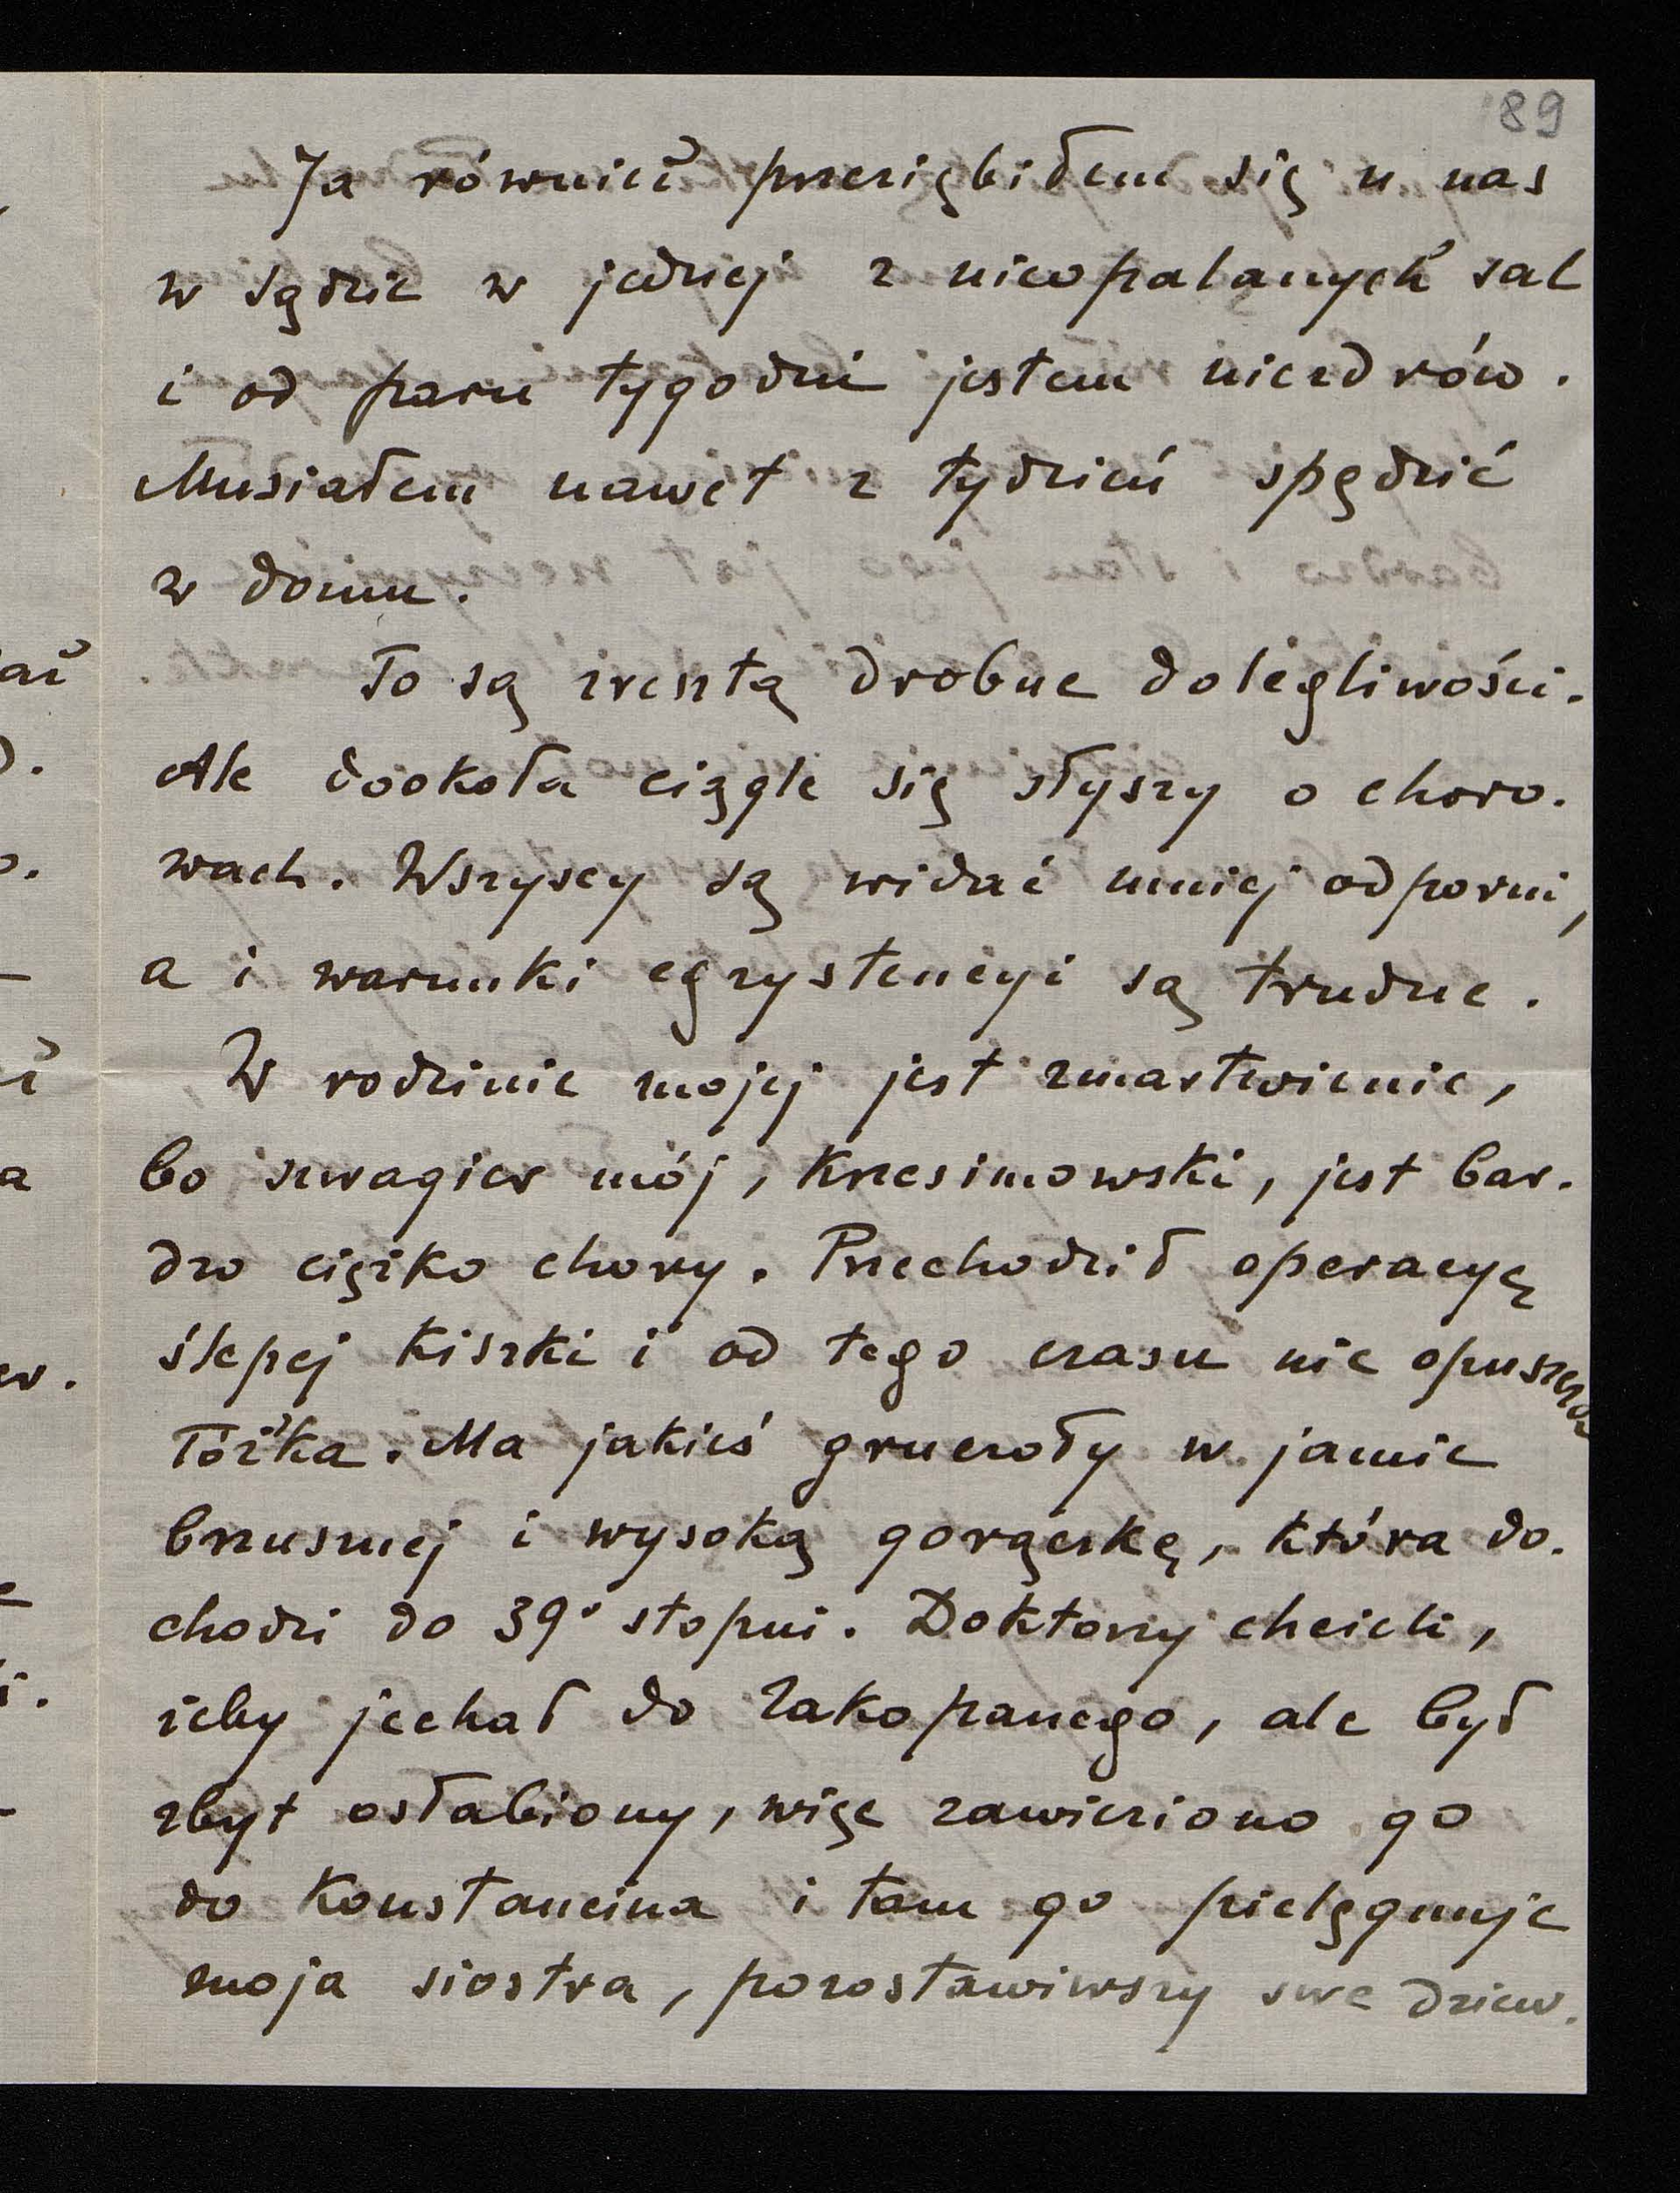 89
Ja również przeziębiłem się u nas
w sądzie w jednej z nieopalanych sal
i od paru tygodni jestem niezdrów.
Musiałem nawet z tydzień spędzić
w domu.
To są zresztą drobne dolegliwości.
Ale dookoła ciągle się słyszy o choro-
wach. Wszyscy są widać mniej odporni,
a i warunki egzystencyi są trudne.
W rodzinie mojej jest zmartwienie,
bo szwagier mój, Krzesimowski, jest bar-
dzo ciężko chory. Przechodził operacyę
ślepej kiszki i od tego czasu nie opuszcza
łóżka. Ma jakieś gruczoły w jamie
brzusznej i wysoką gorączkę, która do-
chodzi do 39° stopni. Doktorzy chcieli,
żeby jechał do Zakopanego, ale był
zbyt osłabiony, więc zawieziono go
do Konstancina i tam go pielęgnuje
moja siostra, pozostawiwszy swe dziew-